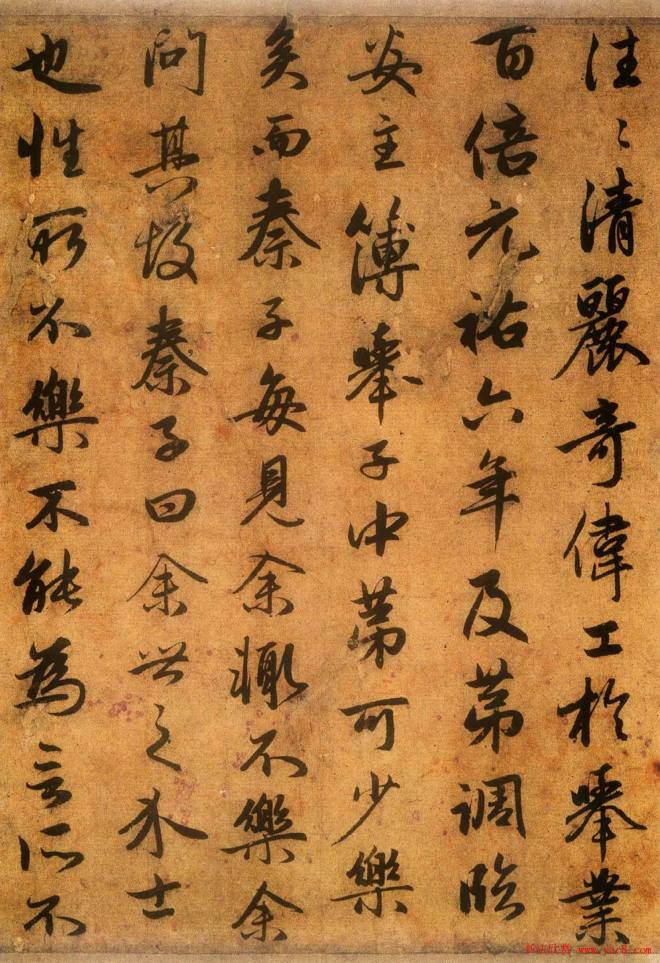 往〻清麗奇偉工於舉業
百倍元祐六年及第調臨
安主簿舉子中第可少樂
矣而秦子每見余輒不樂余
問其故秦子曰余世之介士
也性所不樂不能為言所不
www.yac8.com